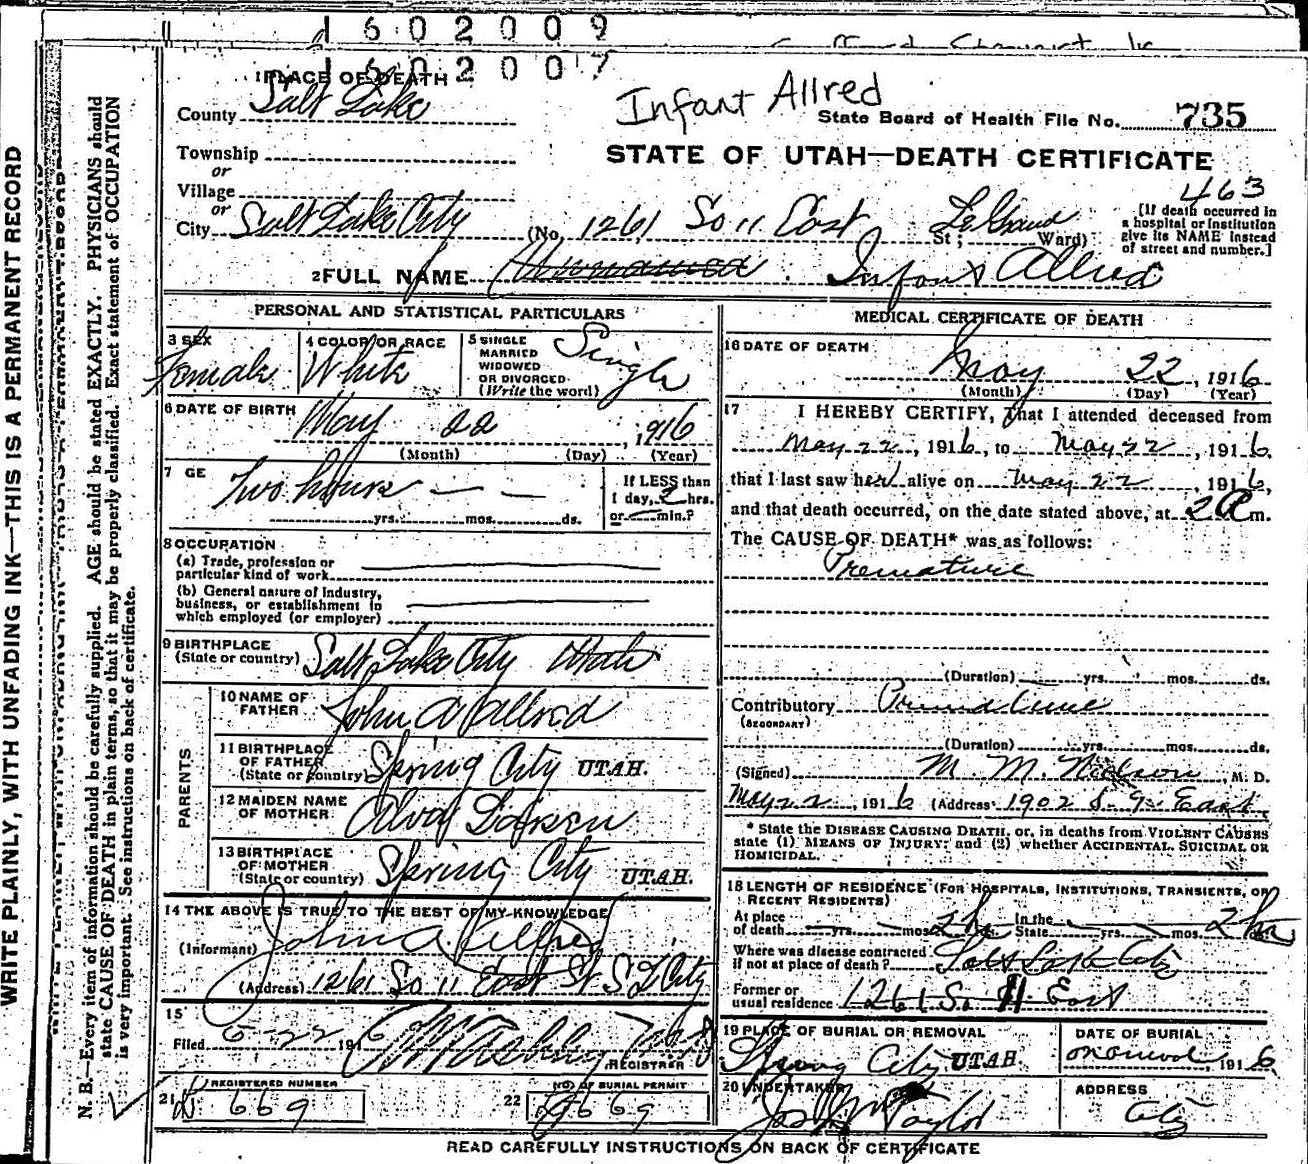 1602009
1602007
1 PLACE OF DEATH
County Salt Lake
Infant Allred
State Board of Health File No. 735
Township
or
STATE OF UTAH—DEATH CERTIFICATE
Village
or
463
City Salt Lake City (No. 1261 So 11 East St; Ward)
[If death occurred in
a hospital or institution
give its NAME instead
of street and number.]
2 FULL NAME Infant Allred
PERSONAL AND STATISTICAL PARTICULARS
3 SEX
Female
4 COLOR OR RACE
White
5 SINGLE
MARRIED
WIDOWED
OR DIVORCED
(Write the word)
Single
6 DATE OF BIRTH
May 22, 1916
(Month) (Day) (Year)
7 GE
Two hours — — —
yrs. mos. ds.
If LESS than
1 day, 2 hrs.
or — min.?
8 OCCUPATION
(a) Trade, profession or
particular kind of work
(b) General nature of Industry,
business, or establishment in
which employed (or employer)
9 BIRTHPLACE
(State or country) Salt Lake City Utah
PARENTS
10 NAME OF
FATHER John A Allred
11 BIRTHPLACE
OF FATHER
(State or country) Spring City UTAH.
12 MAIDEN NAME
OF MOTHER
13 BIRTHPLACE
OF MOTHER
(State or country) Spring City UTAH.
14 THE ABOVE IS TRUE TO THE BEST OF MY KNOWLEDGE
(Informant) John A Allred
(Address) 1261 So 11 East St S L City
15
Filed 5-22 1916
REGISTRAR
REGISTERED NUMBER
21 669
NO. OF BURIAL PERMIT
22 669
MEDICAL CERTIFICATE OF DEATH
16 DATE OF DEATH
May 22, 1916
(Month) (Day) (Year)
17 I HEREBY CERTIFY, That I attended deceased from
May 22, 1916, to May 22, 1916,
that I last saw her alive on May 22, 1916,
and that death occurred, on the date stated above, at 2 m.
The CAUSE OF DEATH* was as follows:
Premature
(Duration) yrs. mos. ds.
Contributory Premature
(SECONDARY)
(Duration) yrs. mos. ds.
(Signed) M. M. Nielson, M. D.
May 22, 1916 (Address 1902 S. 9. East
* State the DISEASE CAUSING DEATH, or, in deaths from VIOLENT CAUSES
state (1) MEANS OF INJURY; and (2) whether ACCIDENTAL, SUICIDAL OR
HOMICIDAL.
18 LENGTH OF RESIDENCE (FOR HOSPITALS, INSTITUTIONS, TRANSIENTS, OR
RECENT RESIDENTS)
At place
of death yrs. mos. 2 hrs In the
State yrs. mos. 2 hrs
Where was disease contracted
if not at place of death? Salt Lake City
Former or
usual residence 1261 So. 11 East
19 PLACE OF BURIAL OR REMOVAL
Spring City UTAH
DATE OF BURIAL
1916
20 UNDERTAKER
Taylor
ADDRESS
City
READ CAREFULLY INSTRUCTIONS ON BACK OF CERTIFICATE
WRITE PLAINLY, WITH UNFADING INK—THIS IS A PERMANENT RECORD
N. B.—Every item of information should be carefully supplied. AGE should be stated EXACTLY. PHYSICIANS should
state CAUSE OF DEATH in plain terms, so that it may be properly classified. Exact statement of OCCUPATION
is very important. See instructions on back of certificate.